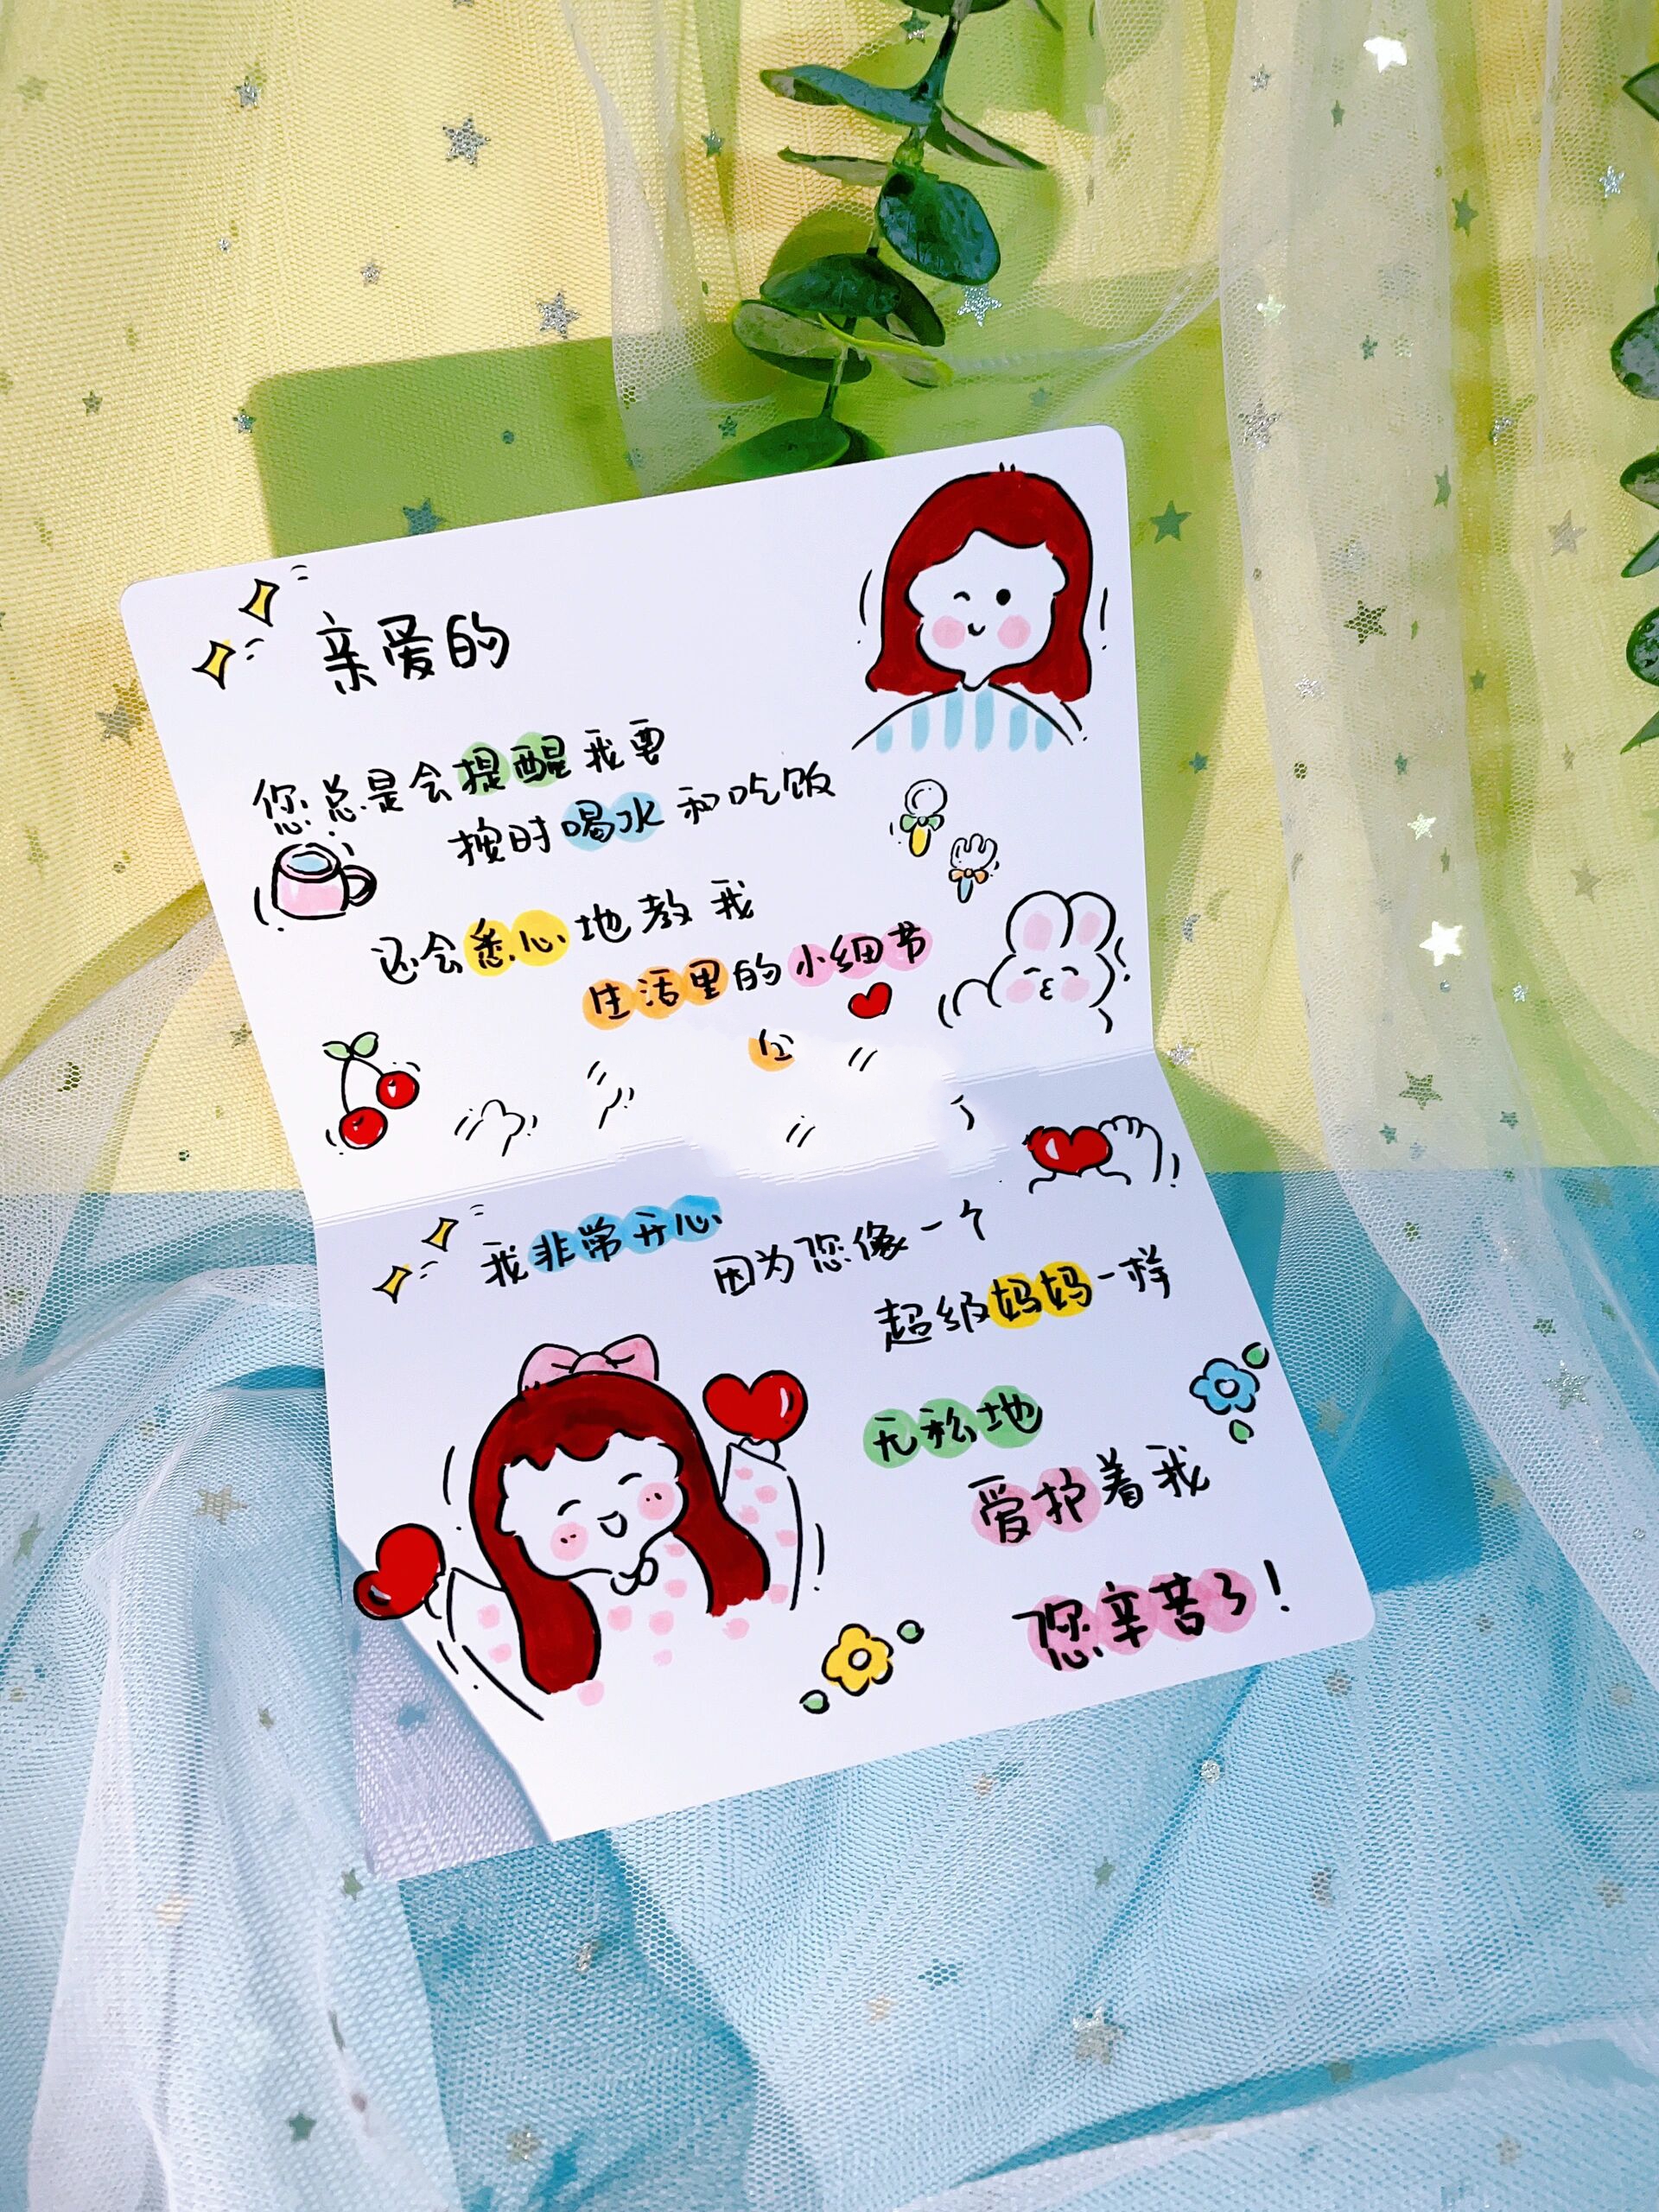 亲爱的
您总是会提醒我要
按时喝水和吃饭
还会悉心地教我
生活里的小细节
我非常开心
因为您像一个
超级妈妈一样
无私地
爱护着我
您辛苦了！